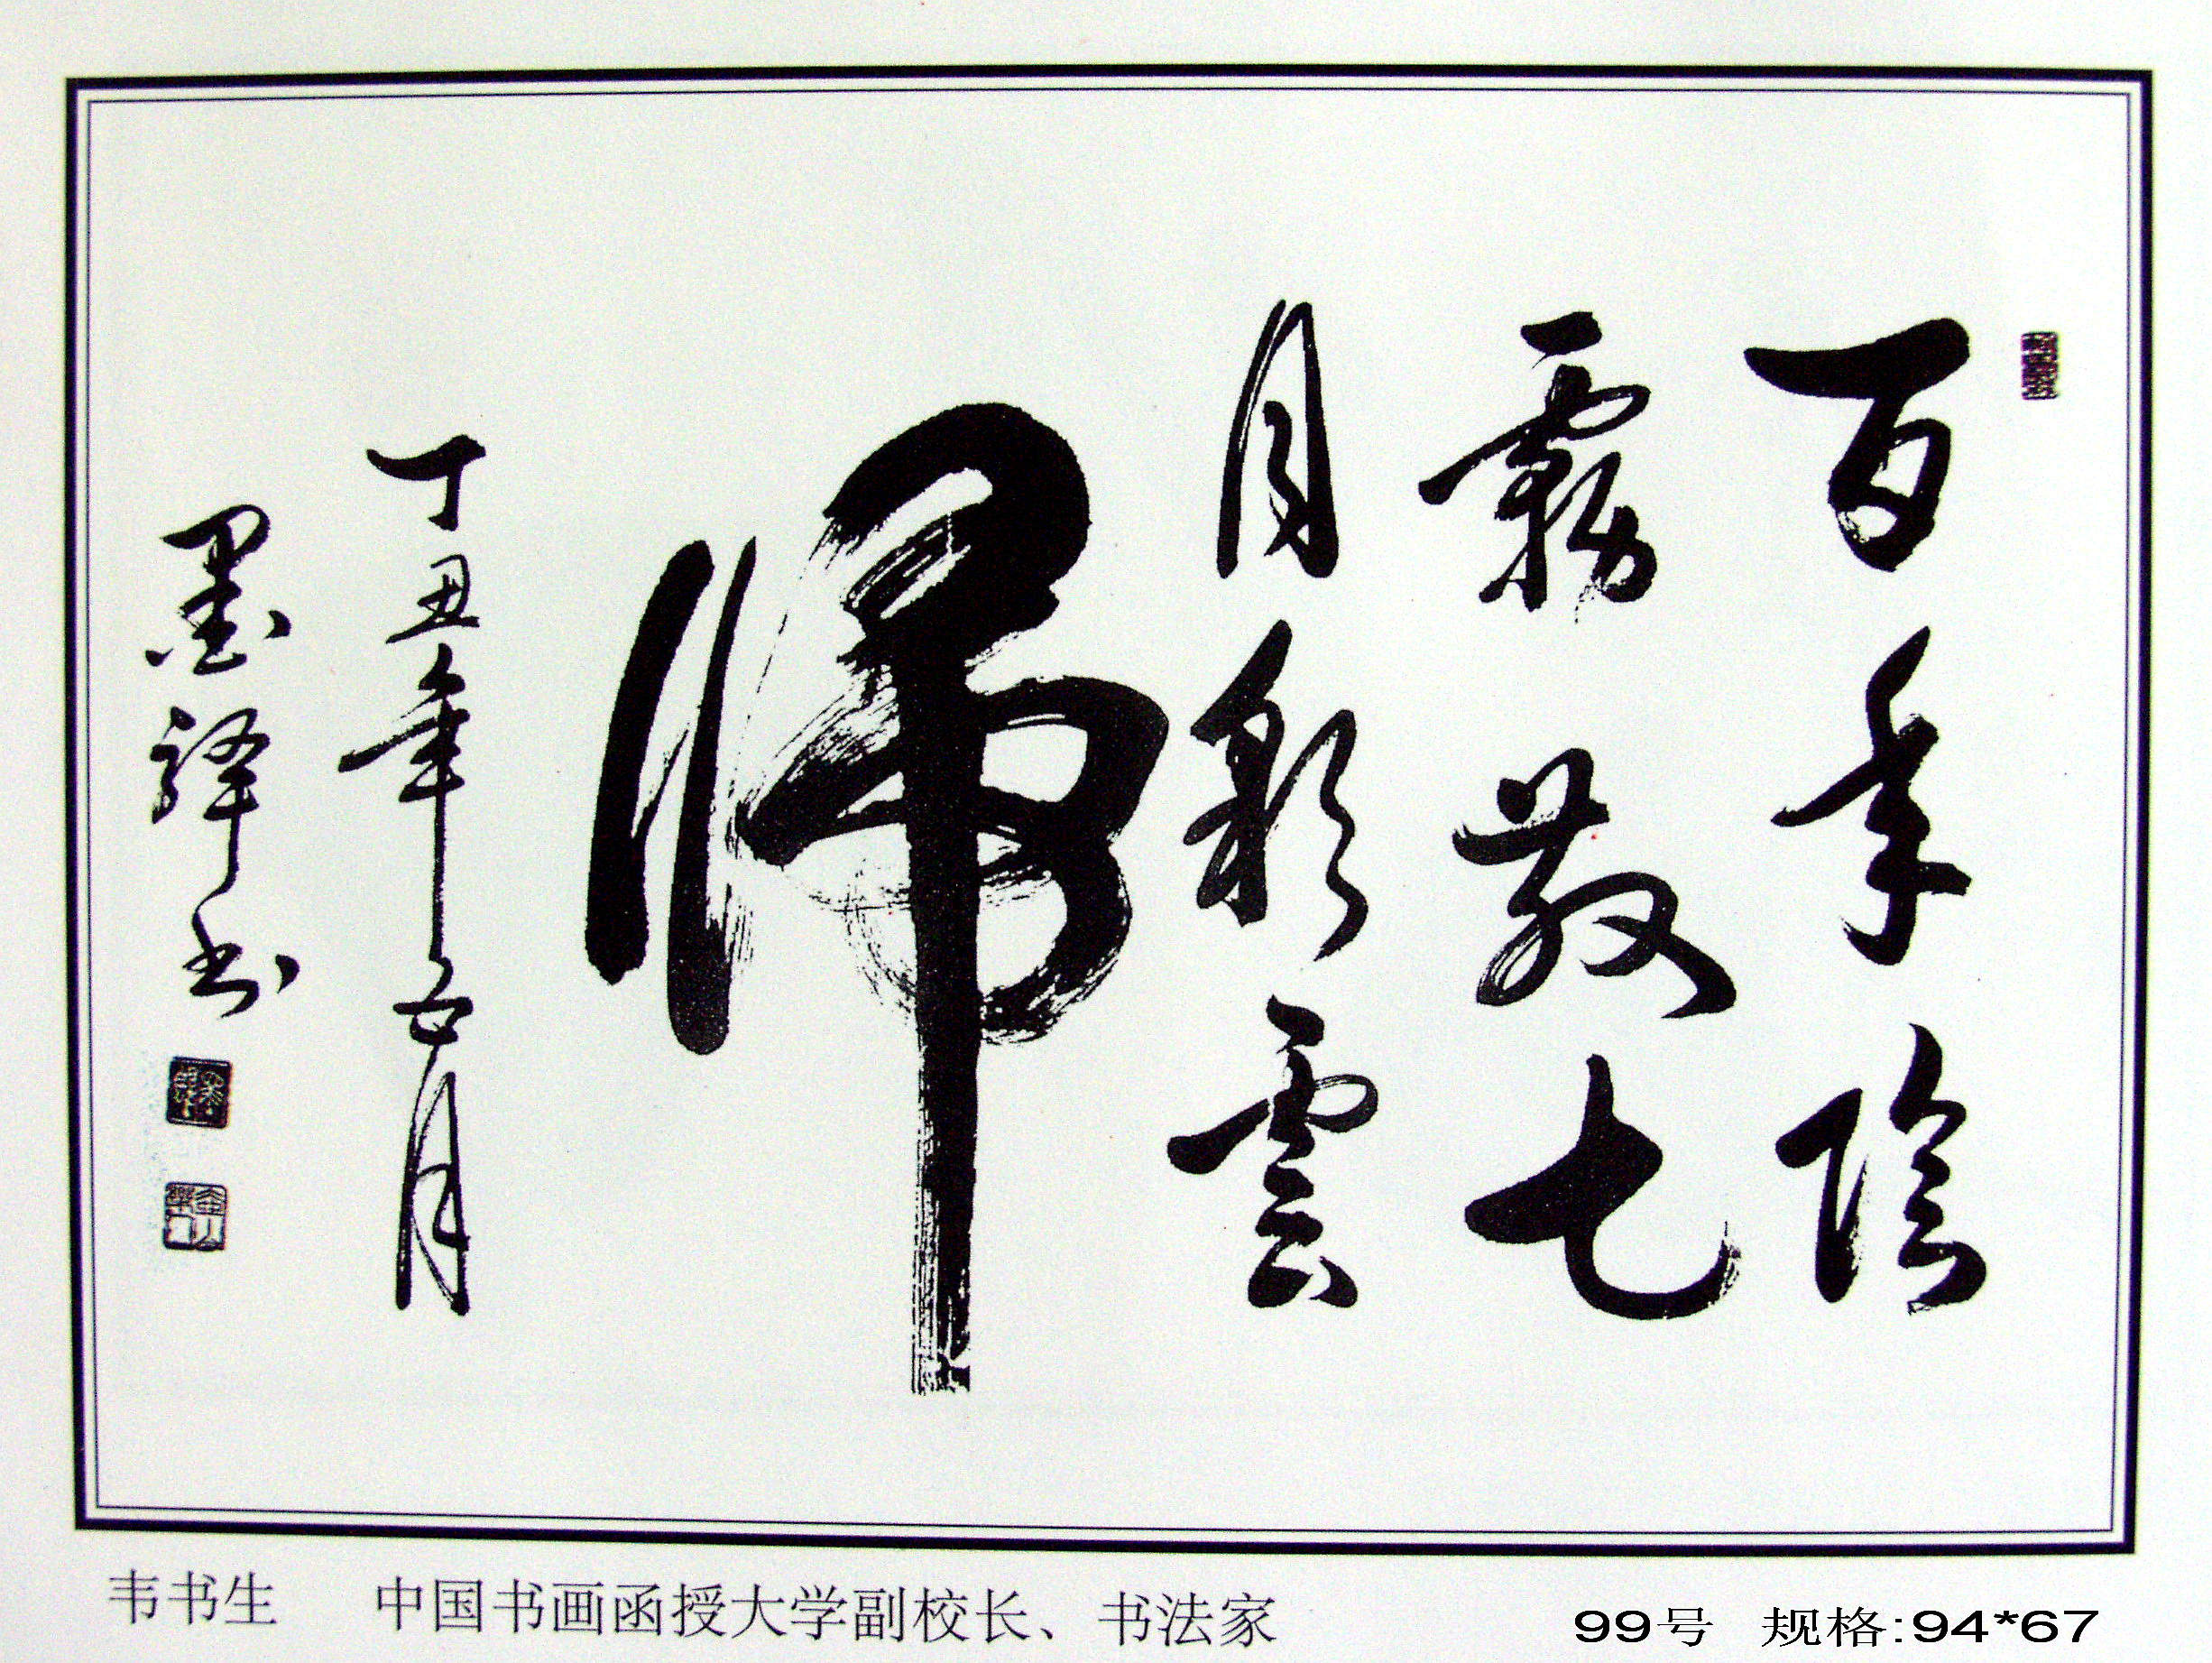 百年陰
霧散七
月彩雲
歸
丁丑年五月
墨譯书
韦书生 中国书画函授大学副校长、书法家
99号 规格:94*67